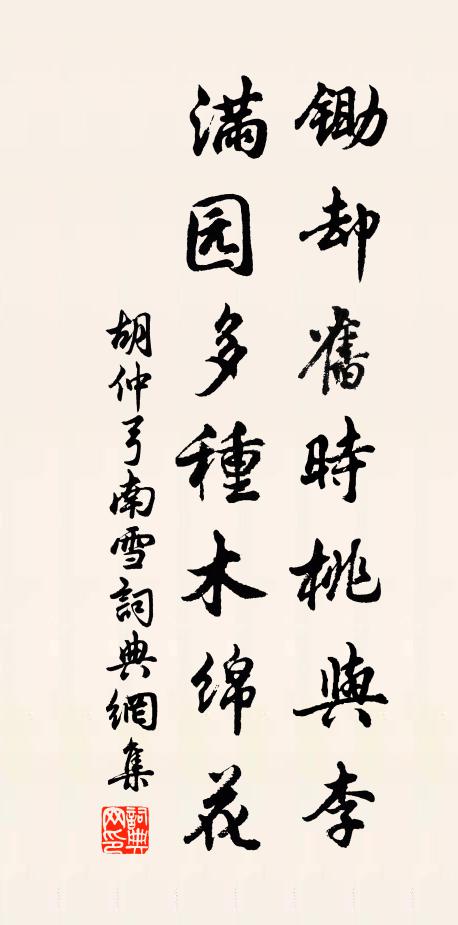 鋤却舊時桃與李
满园多種木綿花
胡仲弓南雪詞典網集
詞典网印